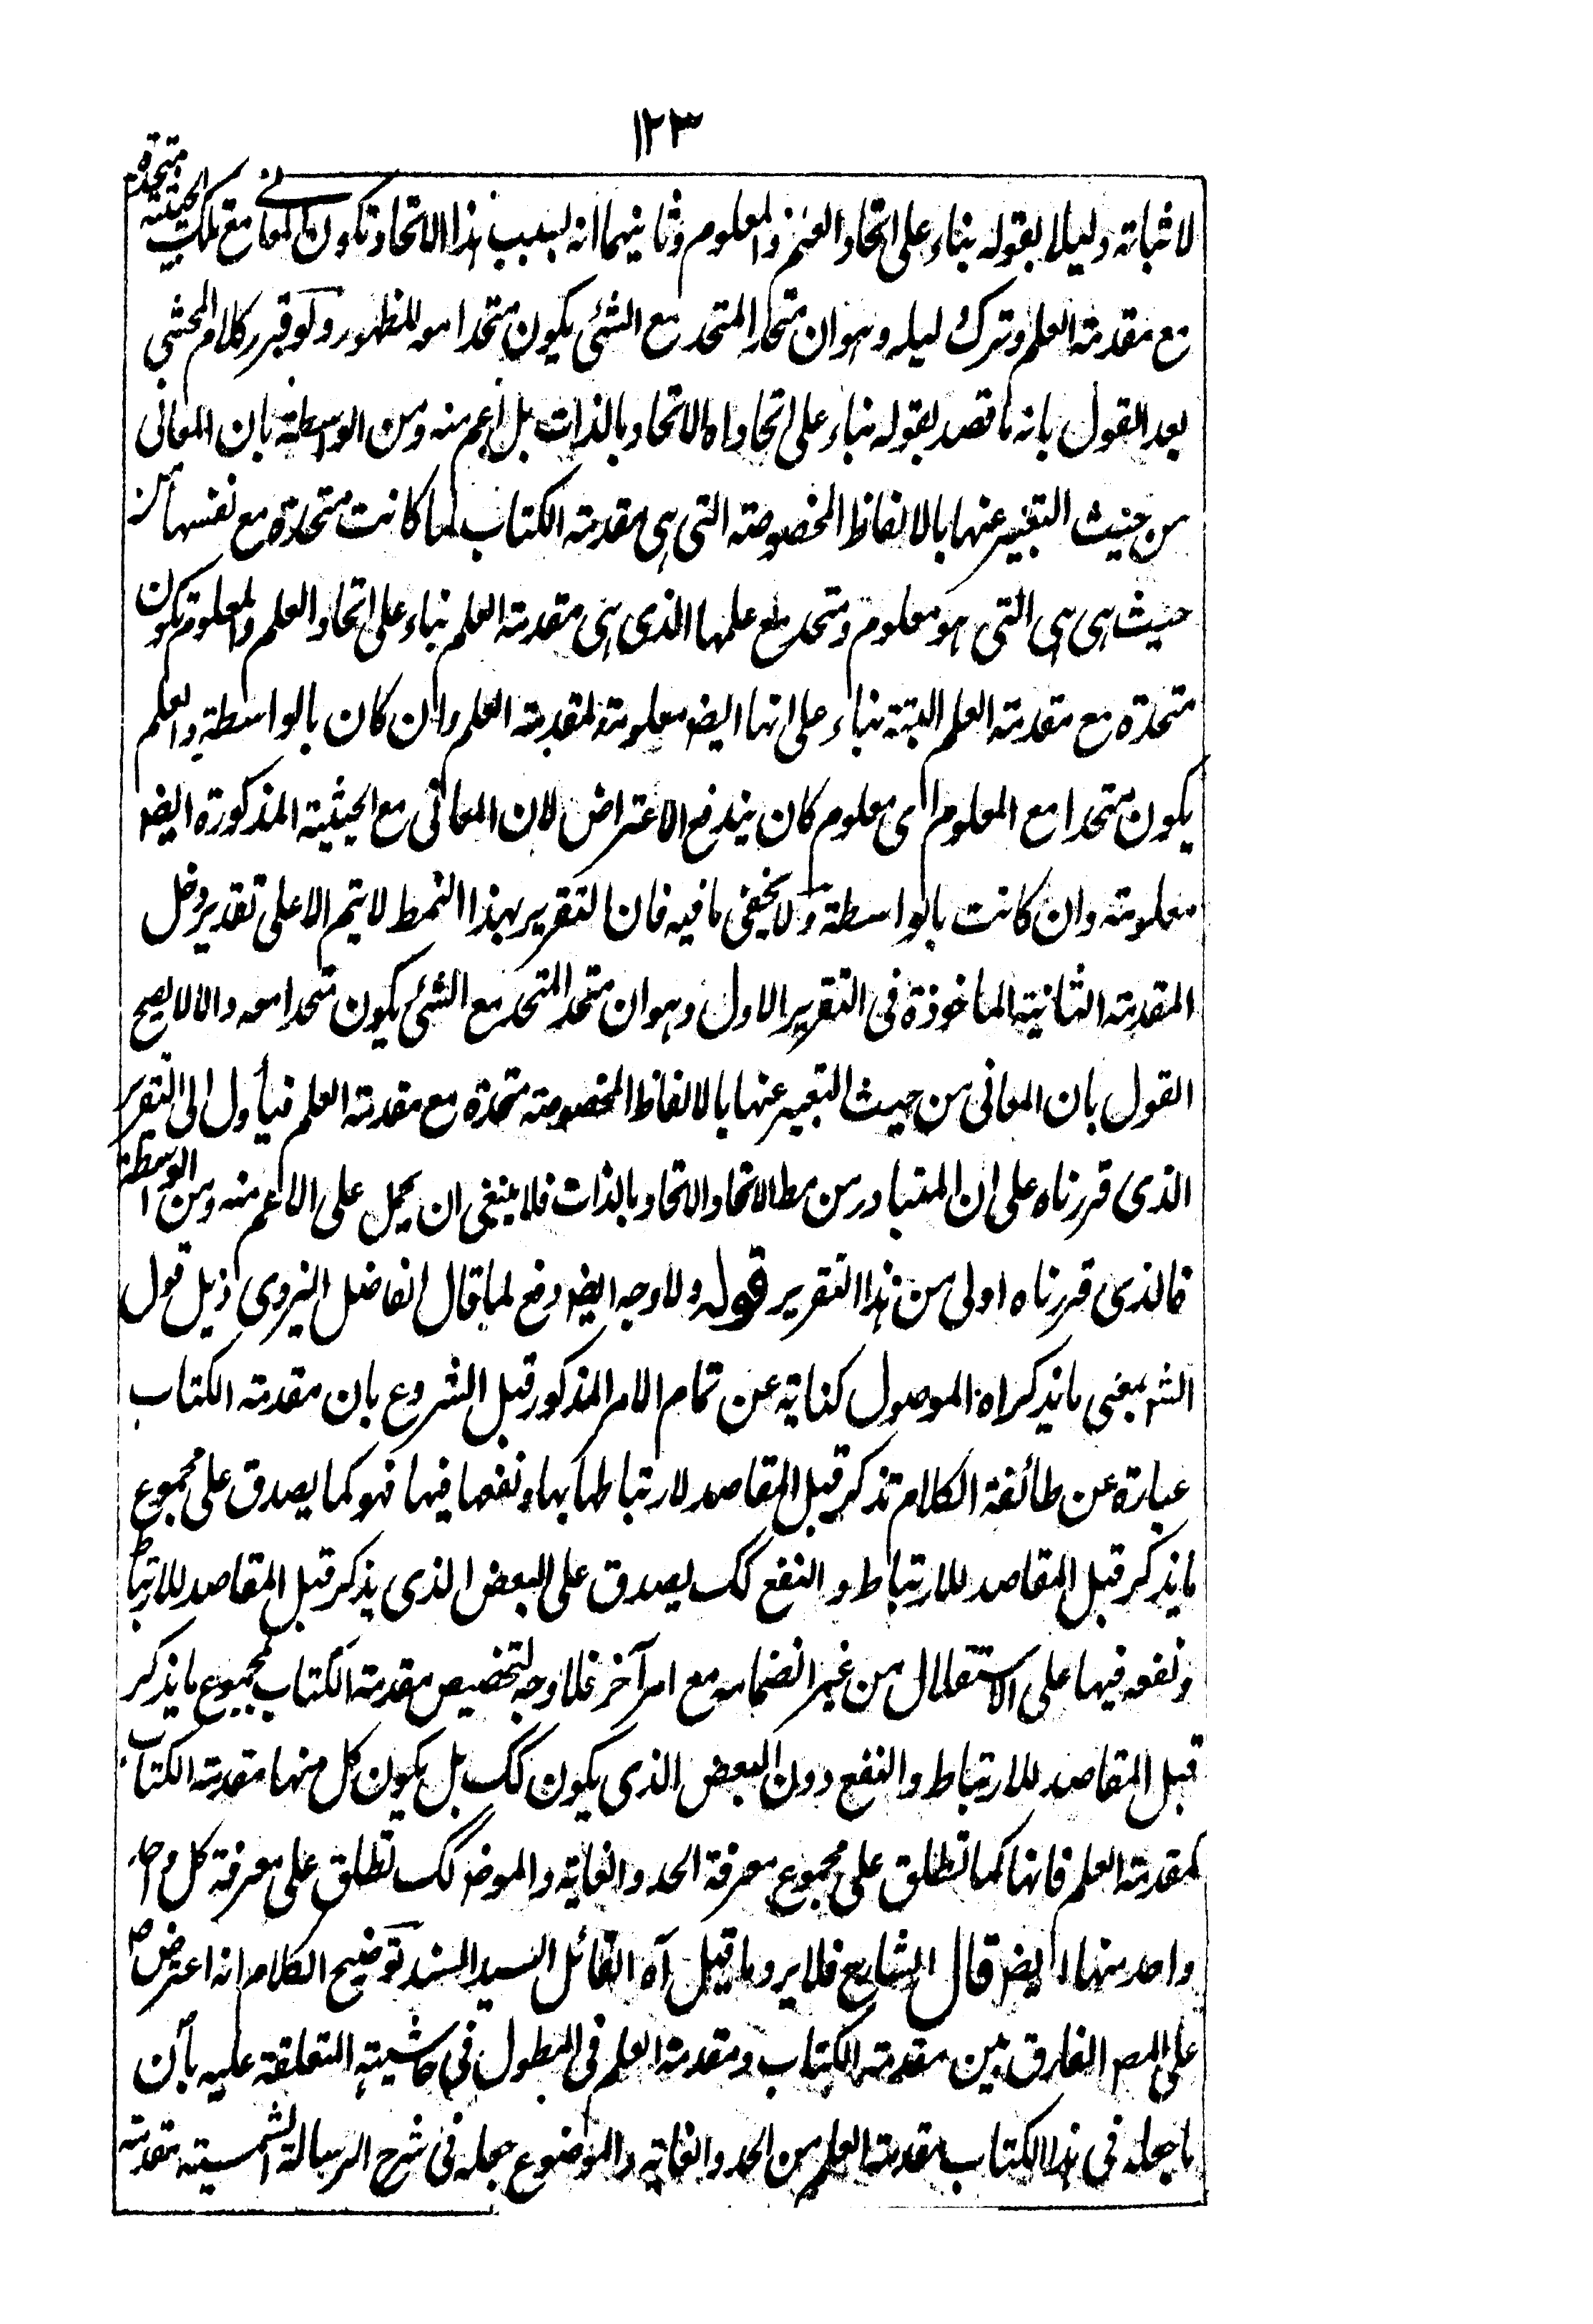 ١٢٣
لاثباته دليلا بقوله بناء على اتحاد العلم والمعلوم وثانيهما انه بسبب هذا الاتحاد تكون المعانى مع تلك الحيثية متحدة
مع مقدمة العلم وترك دليله وهو ان متحد المتحد مع الشئ يكون متحدا معه للظهور ولو قرر كلام المحشى
بعد القول بانه ما قصد بقوله بناء على اتحاد اه الاتحاد بالذات بل اعم منه ومن الواسطة بان المعانى
من حيث التعبير عنها بالالفاظ المخصوصة التى هى مقدمة الكتاب لما كانت متحدة مع نفسها من
حيث هى هى التى هو معلوم ومتحد مع علمها الذى هى مقدمة العلم بناء على اتحاد العلم والمعلوم تكون
متحدة مع مقدمة العلم البتة بناء على انها ايضا معلومة لمقدمة العلم وان كان بالواسطة والعلم
يكون متحدا مع المعلوم اى معلوم كان يندفع الاعتراض لان المعانى مع الحيثية المذكورة ايضا
معلومة وان كانت بالواسطة ولا يخفى ما فيه فان التقرير بهذا النمط لا يتم الا على تقدير دخل
المقدمة الثانية الماخوذة فى التقرير الاول وهو ان متحد المتحد مع الشئ يكون متحدا معه والا لا يصح
القول بان المعانى من حيث التعبير عنها بالالفاظ المخصوصة متحدة مع مقدمة العلم فيأول الى التقرير
الذى قررناه على ان المتبادر من مط الاتحاد الاتحاد بالذات فلا ينبغى ان يحمل على الاعم منه ومن الواسطة
فالذى قررناه اولى من هذا التقرير قوله ولا وجه ايضا دفع لما قال الفاضل اليزدى ذيل قول
الشه بمعنى ما يذكر اه الموصول كناية عن تمام الامر المذكور قبل الشروع بان مقدمة الكتاب
عبارة عن طائفة الكلام تذكر قبل المقاصد لارتباطها بها ونفعها فيها فهو كما يصدق على مجموع
ما يذكر قبل المقاصد للارتباط والنفع كك يصدق على البعض الذى يذكر قبل المقاصد للارتباط
ونفعه فيها على الاستقلال من غير انضمامه مع امر آخر فلا وجه لتخصيص مقدمة الكتاب بمجموع ما يذكر
قبل المقاصد للارتباط والنفع دون البعض الذى يكون كك بل يكون كل منها مقدمة الكتاب
كمقدمة العلم فانها كما تطلق على مجموع معرفة الحد والغاية والموضـ كك تطلق على معرفة كل واحد
واحد منها ايضا قال الشارح فلا يرد ما قيل آه القائل السيد السند توضيح الكلام انه اعترض
على المصـ الفارق بين مقدمة الكتاب ومقدمة العلم فى المطول فى حاشيته المتعلقة عليه بأن
ما جعله فى هذا الكتاب مقدمة العلم من الحد والغاية والموضوع جعله فى شرح الرسالة الشمسية مقدمة